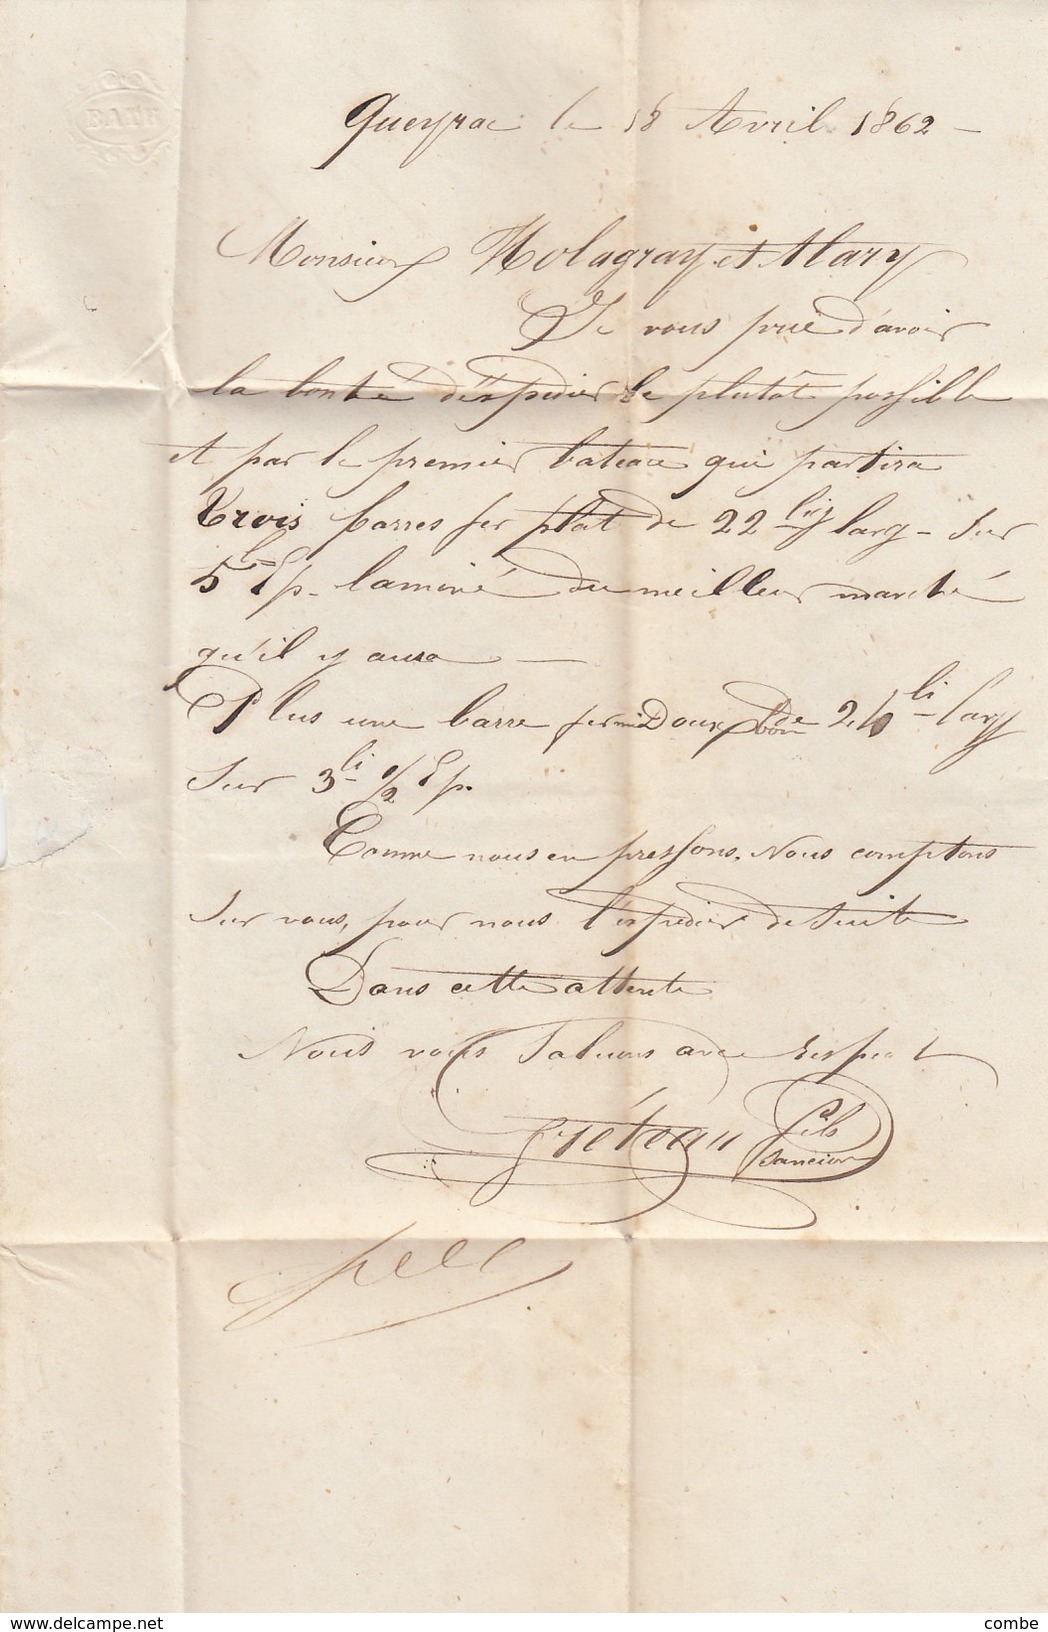 BATH
Queyrac le 18 Avril 1862 -
Monsieurs Molagray et Alary
Je vous prie d'avoir
la bonté d'éxpedier le plutôt possible
et par le premier bateau qui partira
trois barres fer plat de 22 lig larg - sur
5 li Ep. laminé du meilleur marché
qu'il y aura -
Plus une barre fer mi Doux bon de li larg
sur 3 li 1/2 Ep.
Comme nous en pressons, Nous comptons
sur vous, pour nous l'expedier de suite
Dans cette attente
Nous vous Saluons avec respect
fils
www.delcampe.net
combe